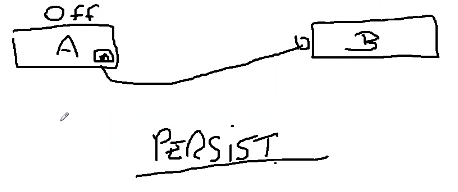 Off
A
B
PERSIST